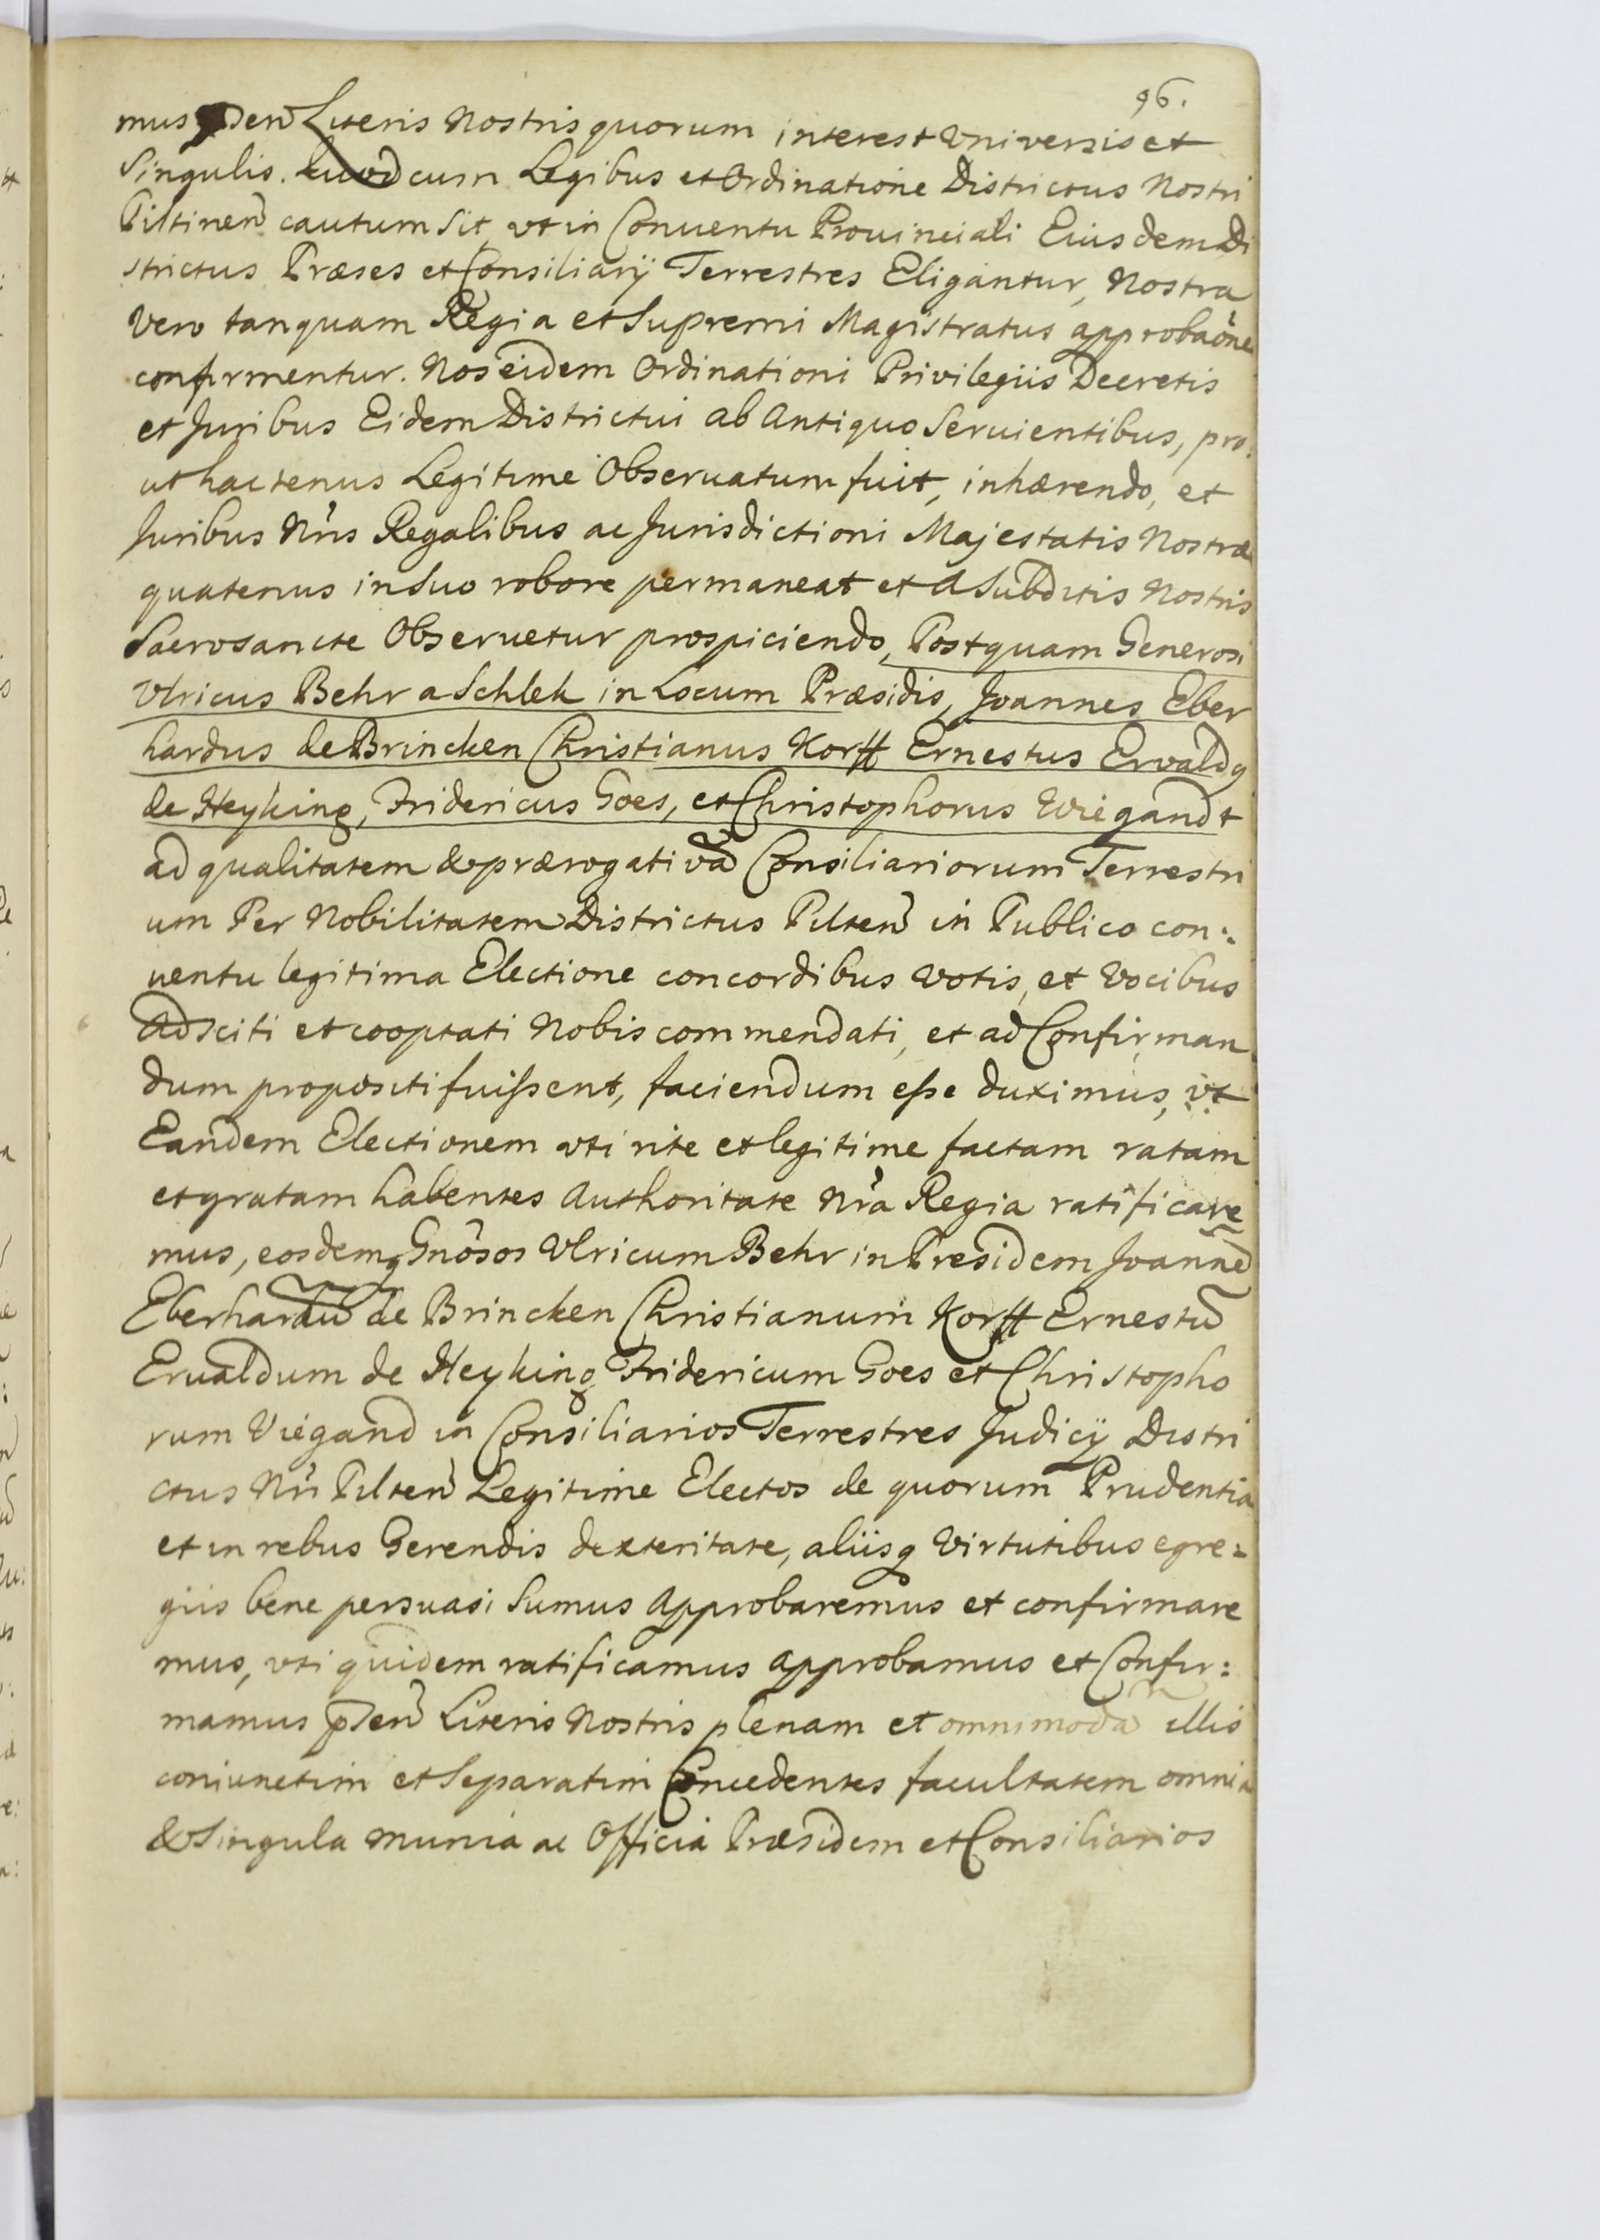 96.
mus psen Literis Nostris quorum interest Universis et
Singulis. Quod cum Legibus et Ordinatione Districtus Nostri
Piltinen cautum sit vt in Conuentu Prouinciali Eiusdem Di
strictus Præses et Consiliarij Terrestres Eligantur, Nostra
Vero tanquam Regia et Supremi Magistratus approbaône
confirmentur. Nos eidem Ordinationi Privilegiis Decretis
et Juribus Eidem Districtui ab Antiquo Seruientibus, pro:
ut hactenus Legitime Obseruatum fuit, inhærendo, et
Juribus Nris Regalibus ac Jurisdictioni Majestatis Nostræ
quatenus in Suo robore permaneat et a Subditis Nostris
Sacrosancte Obseruetur prospiciendo, Postquam Generosi
Vlricus Behr a Schlek in Locum Præsidis, Joannes Eber
hardus de Brincken Christianus Korff Ernestus Ervaldq
de Heyking, Fridericus Goes, et Christophorus Wiegandt
ad qualitatem & prærogativa Consiliariorum Terrestri
um Per Nobilitatem Districtus Pilten in Publico con:
uentu legitima Electione concordibus votis, et vocibus
adsciti et cooptati Nobis commendati, et ad Confirman
dum propositi fuissent, faciendum esse duximus, vt
Eandem Electionem vti rite et legitime factam ratam
et gratam habentes Authoritate Nra Regia ratificare
mus, eosdemq Gnôsos Vlricum Behr in Presidem Joanne
Eberhardu de Brincken Christianum Korff Ernestu
Erualdum de Heyking Fridericum Goes et Christopho
rum Viegand in Consiliarios Terrestres Judicij Distri
ctus Nri Pilten Legitime Electos de quorum Prudentia
et in rebus Gerendis dexteritate, aliisq Virtutibus egre:
giis bene persuasi Sumus Approbaremus et confirmare
mus, vti quidem ratificamus approbamus et Confir:
mamus psen Literis Nostris plenam et omnimoda illis
coniunctim et Separatim Concedentes facultatem omnia
& Singula munia ac Officia Præsidem et Consiliarios